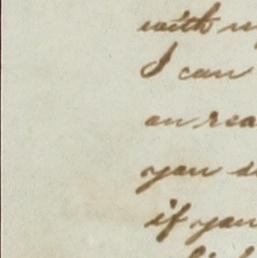 with
I can
on rea
you
if you